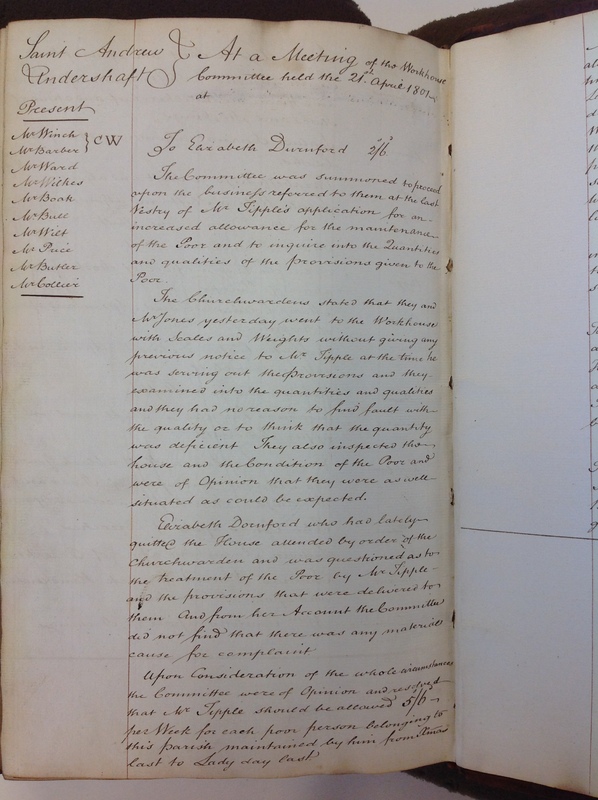 Saint Andrew
Undershaft
At a Meeting of the Workhouse
Committee held the 21st April 1801
at
Present
Mr Winch
Mr Barber } CW
Mr Ward
Mr Wilkes
Mr Boak
Mr Bull
Mr Wilt
Mr Price
Mr Butler
Mr Collier
To Elizabeth Durnford 2s/6d
The Committee was summoned to proceed
upon the business referred to them at the last
Vestry of Mr Tipple's application for an
increased allowance for the maintenance
of the Poor and to inquire into the Quantities
and qualities of the provisions given to the
Poor.
The Churchwardens stated that they and
Mr Jones yesterday went to the Workhouse
with Scales and Weights without giving any
previous notice to Mr Tipple at the time he
was serving out the Provisions and they
examined into the quantities and qualities
and they had no reason to find fault with
the quality or to think that the quantity
was deficient They also inspected the
house and the Condition of the Poor and
were of Opinion that they were as well
situated as could be expected.
Elizabeth Doenford who had lately
quitted the House attended by order of the
Churchwarden and was questioned as to
the treatment of the Poor by Mr Tipple
and the provisions that were delivered to
them And from her Account the Committee
did not find that there was any material
cause for complaint
Upon Consideration of the whole circumstances
the Committee were of Opinion and resolved
that Mr Tipple should be allowed 5s/6d
per Week for each poor person belonging to
this parish maintained by him from Xmas
last to Lady day last